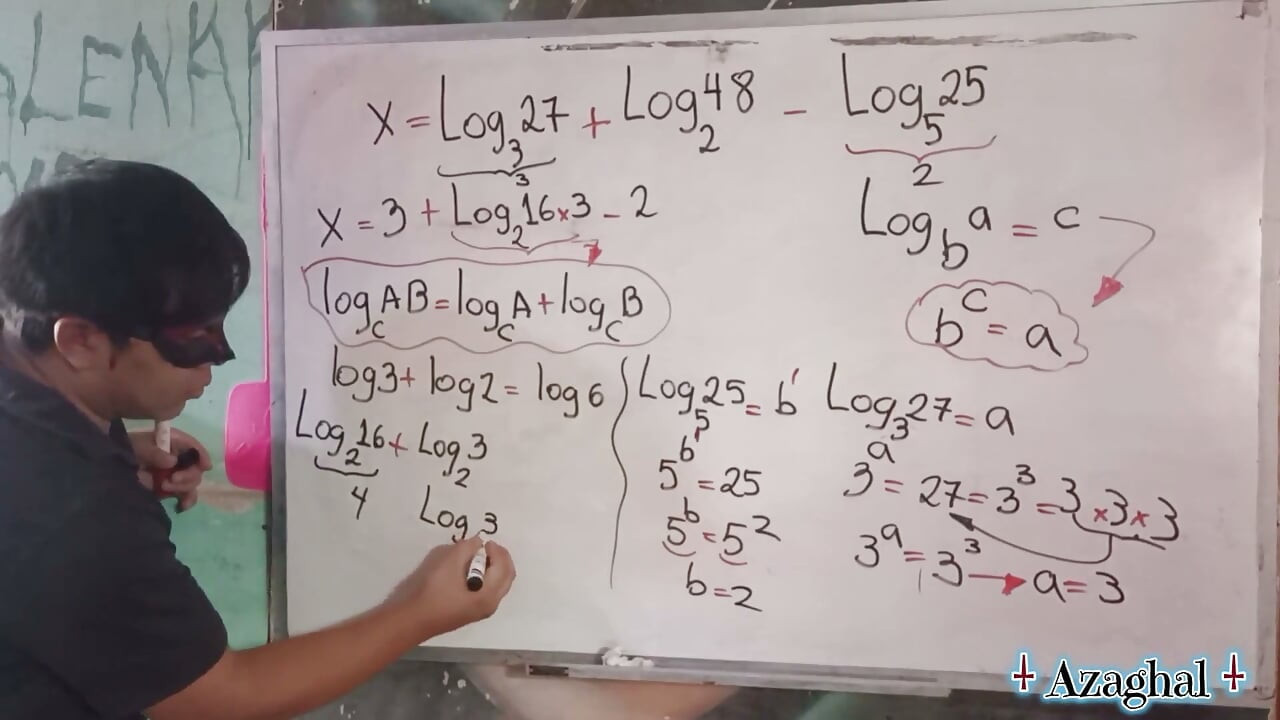 ALENKA
X = Log₃27 + Log₂48 - Log₅25
3
2
X = 3 + Log₂16×3 - 2
Log_b a = c
log_c AB = log_c A + log_c B
b^c = a
log3 + log2 = log6
Log₂16 + Log₂3
4
Log 3
Log₅25 = b'
5^b' = 25
5^b = 5²
b = 2
Log₃27 = a
3^a = 27 = 3³ = 3×3×3
3^a = 3³ → a = 3
Azaghal